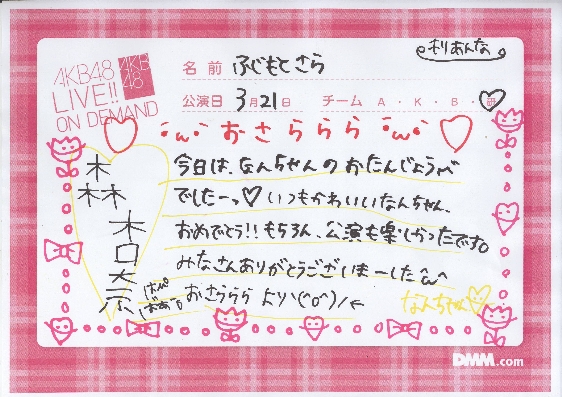 AKB48
LIVE!!
ON DEMAND
AKB
48
名前 ふじもとさら
もりあんな
公演日 3月21日 チーム A・K・B・研
おさららら
今日は、なんちゃんのおたんじょうび
でしたーっ♡いつもかわいいなんちゃん、
おめでとう!!もちろん、公演も楽しかったです。
みなさんありがとうございまーした^ω^
おさららら より\(^o^)/←
なんちゃん♡
DMM.com